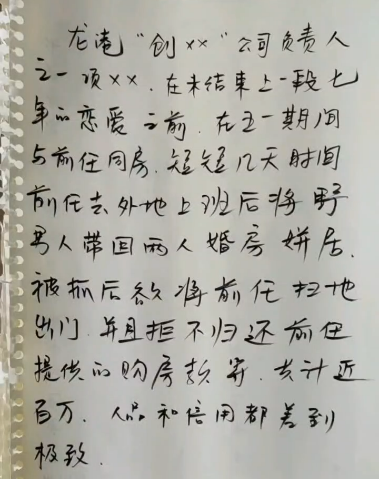 龙港“创××”公司负责人
之一项××.在未结束上一段七
年的恋爱之前.在五一期间
与前任同房.短短几天时间
前任去外地上班后将野
男人带回两人婚房姘居.
被抓后欲将前任扫地
出门.并且拒不归还前任
提供的购房款等.共计近
百万.人品和信用都差到
极致.